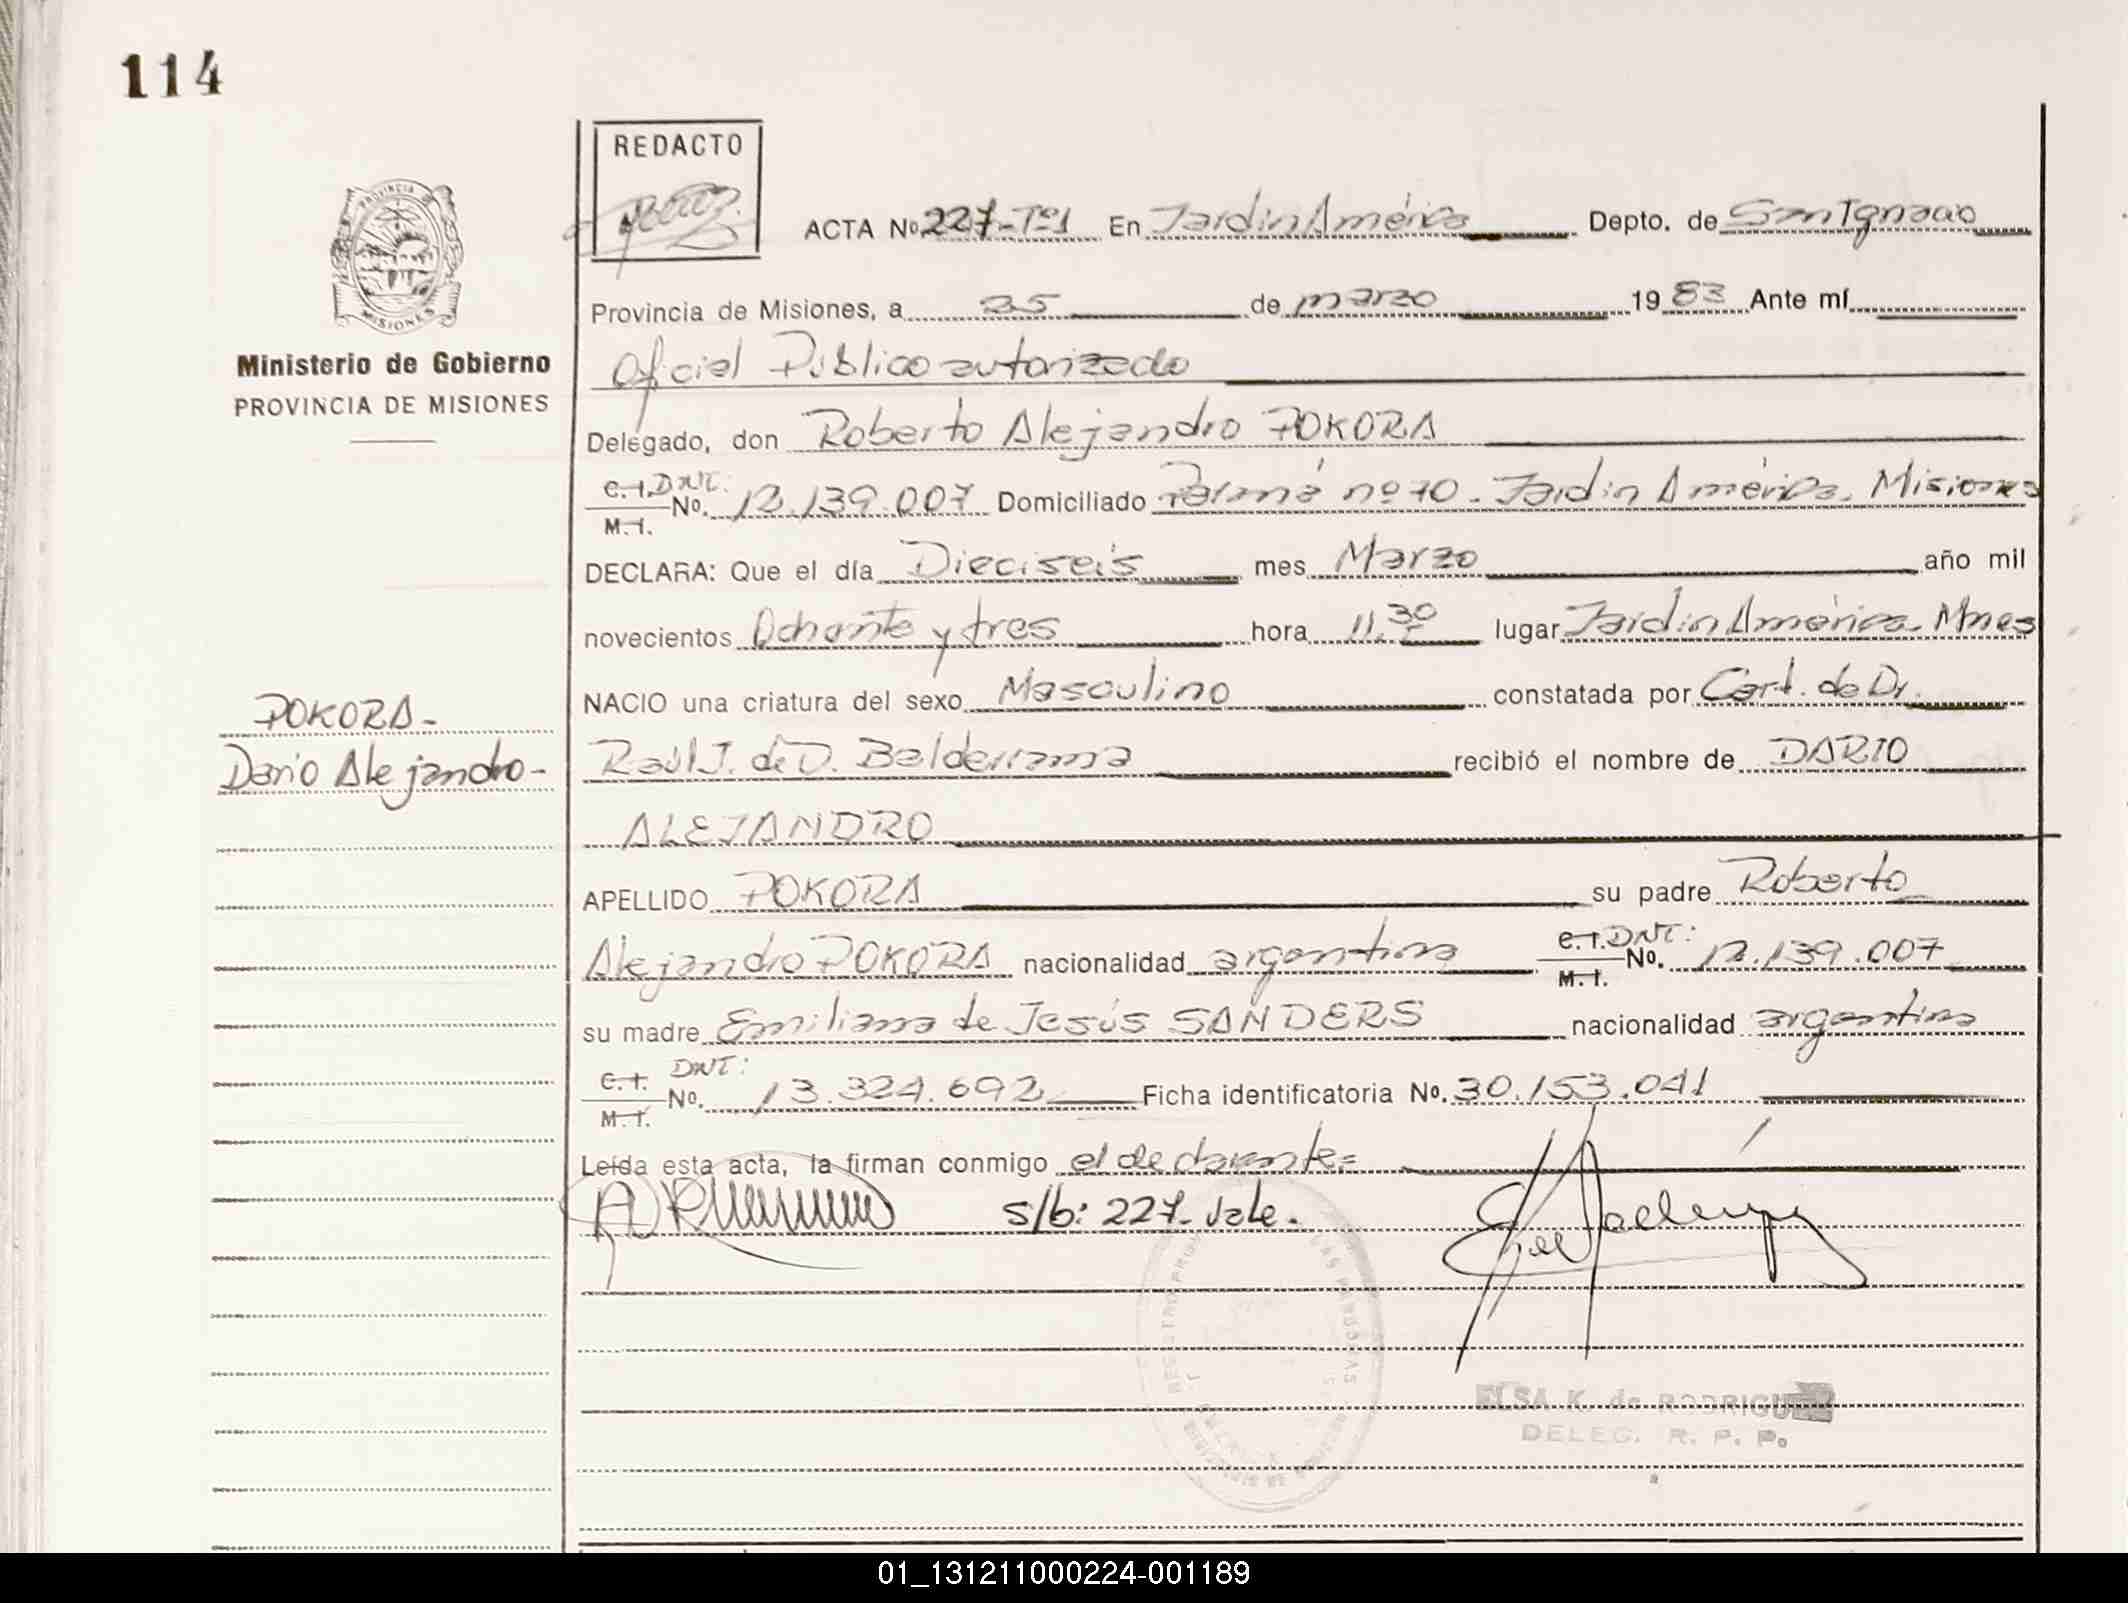 114
REDACTO
PROVINCIA
MISIONES
Ministerio de Gobierno
PROVINCIA DE MISIONES
ACTA No 227-Tº1 En Jardin América Depto. de San Ignacio
Provincia de Misiones, a 25 de marzo 1983 Ante mí
Oficial Público autorizado
Delegado, don Roberto Alejandro POKORA
C.I. DNI: M.I. No. 12.139.007 Domiciliado Paraná nº 70 - Jardin América. Misiones
DECLARA: Que el día Dieciseis mes Marzo año mil
novecientos Ochenta y tres hora 11.30 lugar Jardin América. Mnes
NACIO una criatura del sexo Masculino constatada por Cert. de Dr.
Raúl J. de D. Balderrama recibió el nombre de DARIO
ALEJANDRO
POKORA-
Dario Alejandro-
APELLIDO POKORA su padre Roberto
Alejandro POKORA nacionalidad argentina C.I. DNI: M.I. No. 12.139.007
su madre Emiliana de Jesús SANDERS nacionalidad argentina
C.I. DNI: M.I. No. 13.324.692 Ficha identificatoria No. 30.153.041
Leída esta acta, la firman conmigo el declarante.=
s/b: 227- Vale.
ELSA K. de RODRIGUEZ
DELEG. R. P. P.
01_131211000224-001189